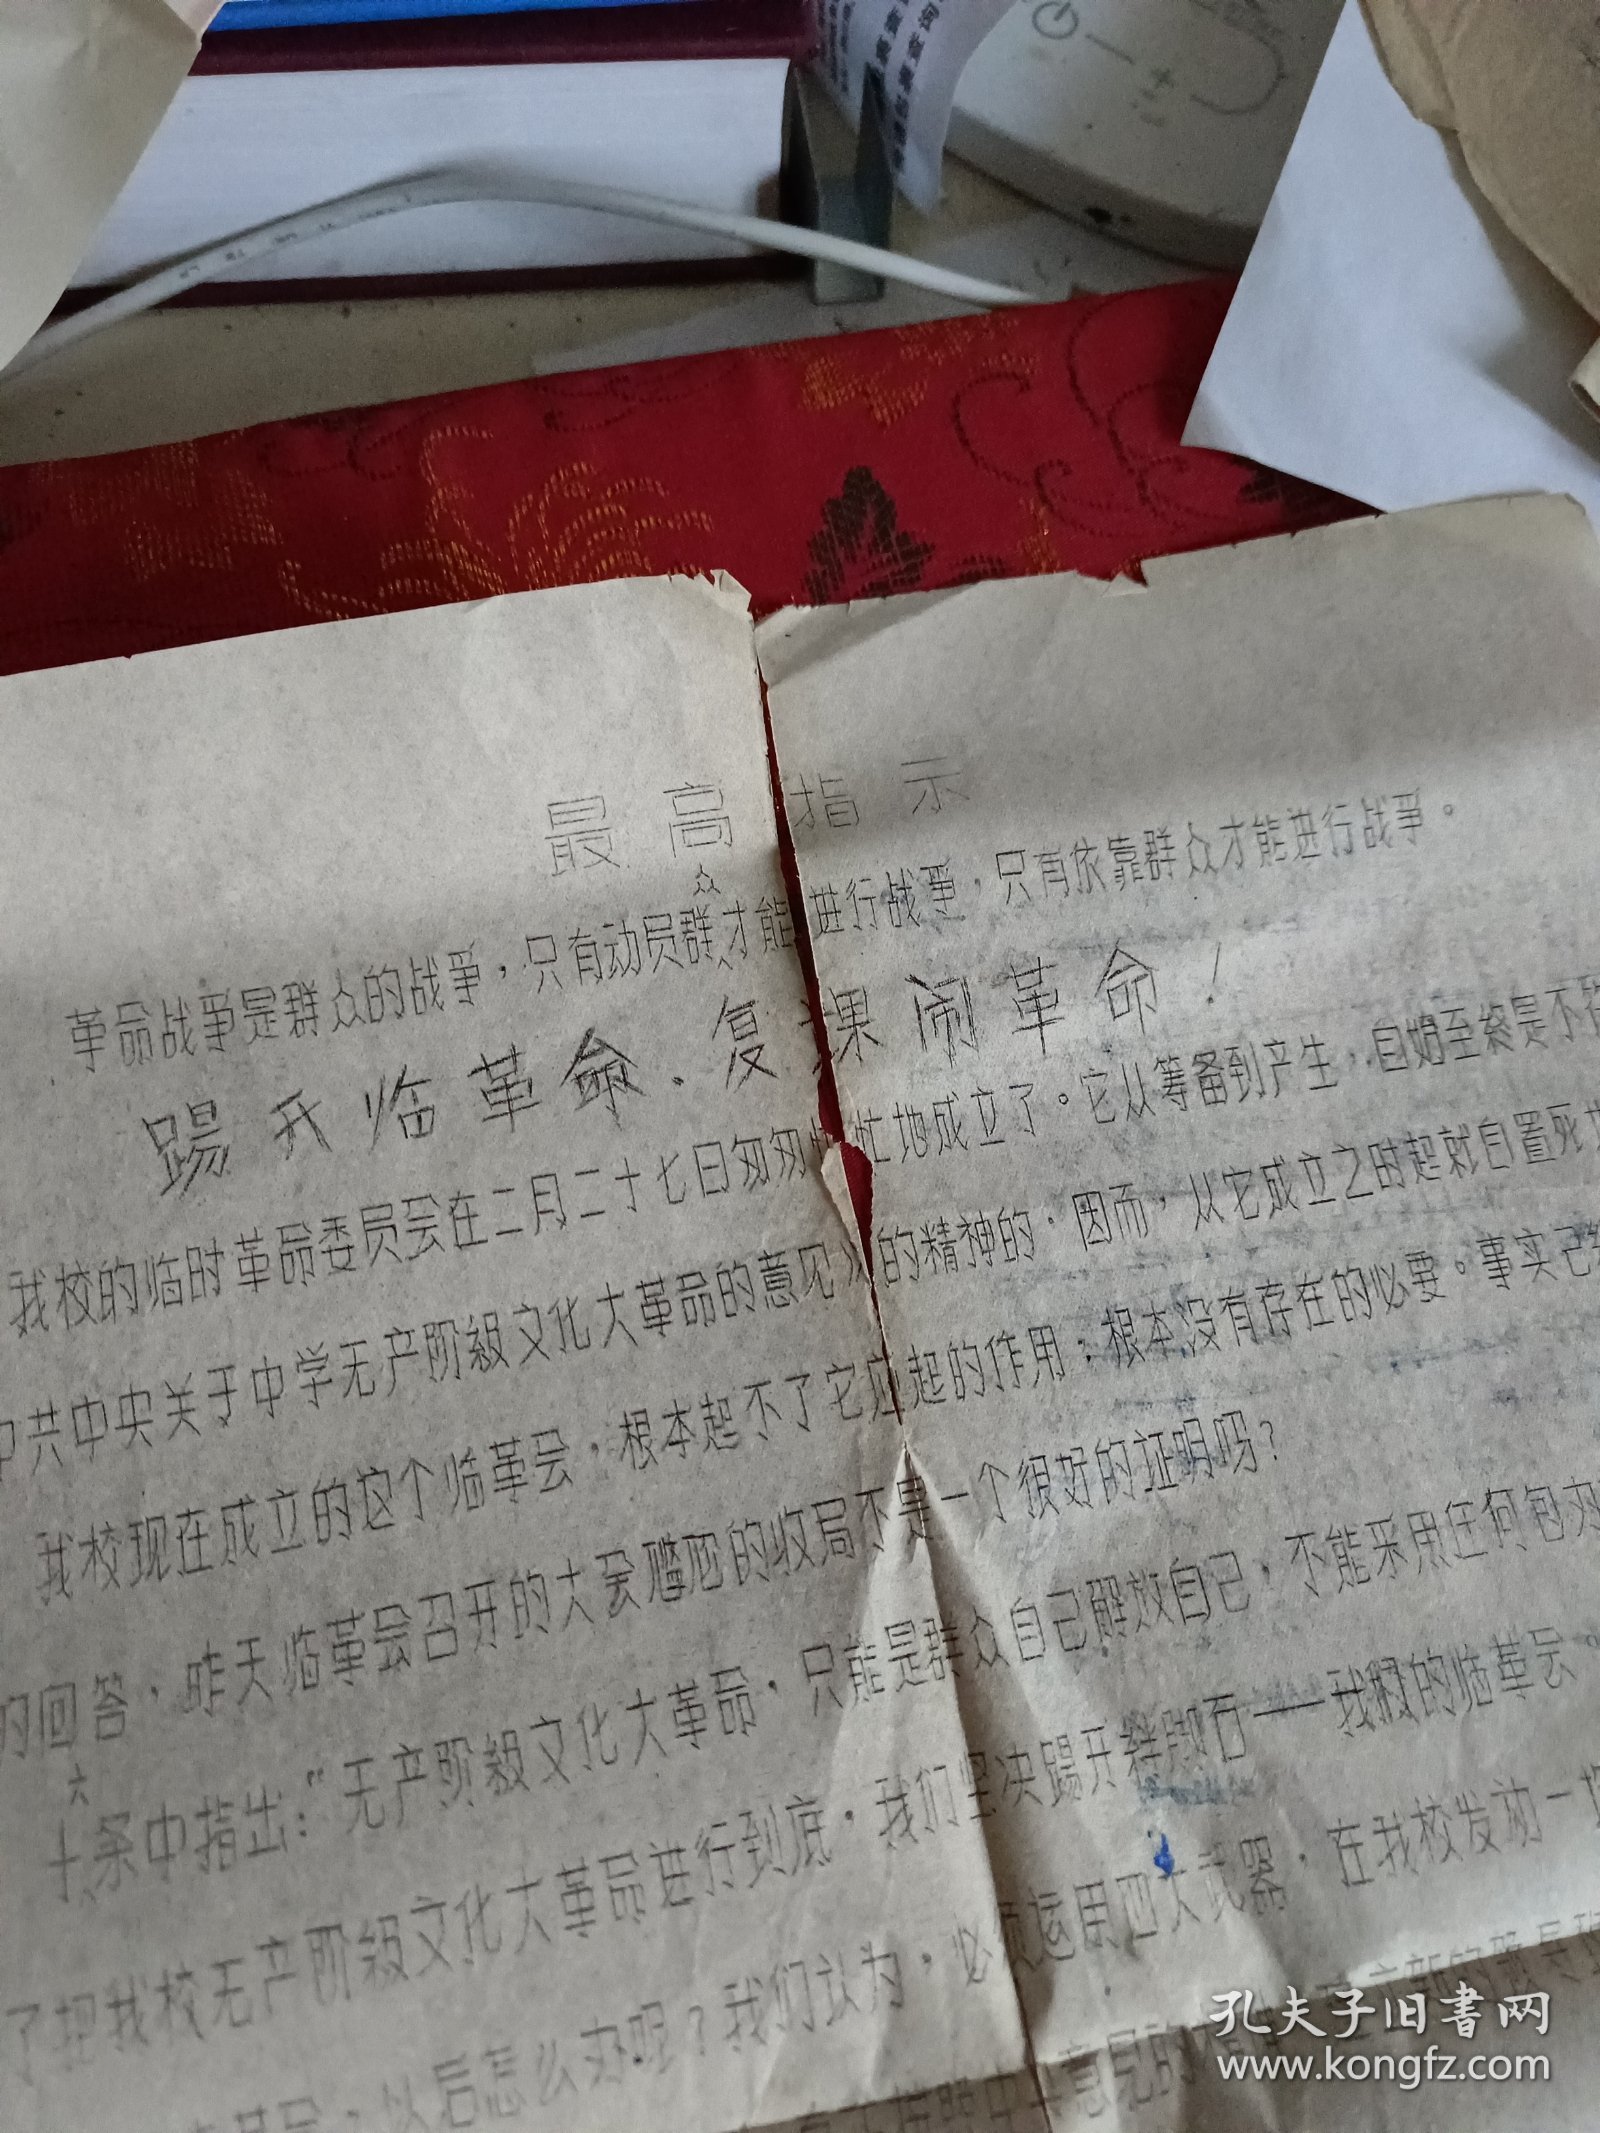 最高指示
革命战争是群众的战争，只有动员群众才能进行战争，只有依靠群众才能进行战争。
踢开临革命．复课闹革命！
我校的临时革命委员会在二月二十七日匆匆忙忙地成立了。它从筹备到产生，自始至终是不符
中共中央关于中学无产阶级文化大革命的意见》的精神的．因而，从它成立之时起就自置死地
我校现在成立的这个临革会，根本起不了它应起的作用；根本没有存在的必要。事实已经
的回答，昨天临革会召开的大会尴尬的收局不是一个很好的证明吗？
十六条中指出：“无产阶级文化大革命，只能是群众自己解放自己，不能采用任何包办
了把我校无产阶级文化大革命进行到底，我们坚决踢开绊脚石——我校的临革会。
以后怎么办呢？我们认为，必须运用四大武器，在我校发动一场
意见的
孔夫子旧书网
www.kongfz.com